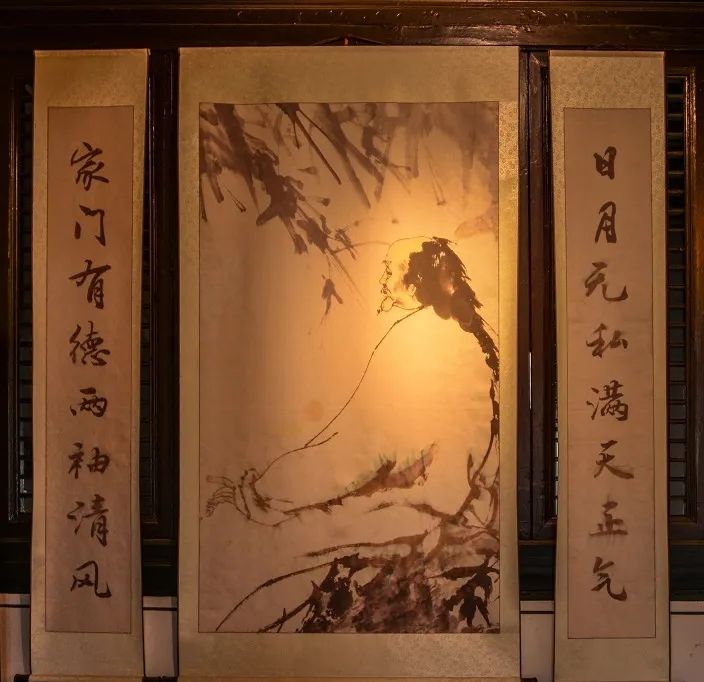 日月无私满天正气
家门有德两袖清风